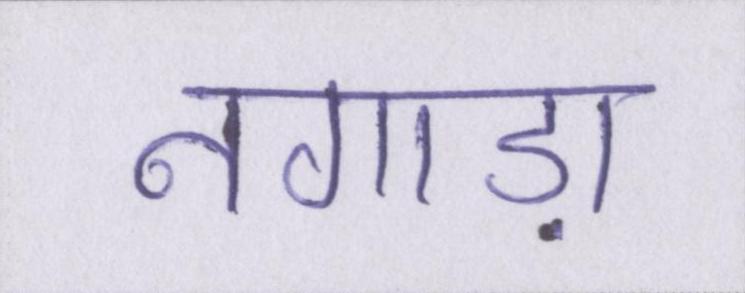 नगाड़ा